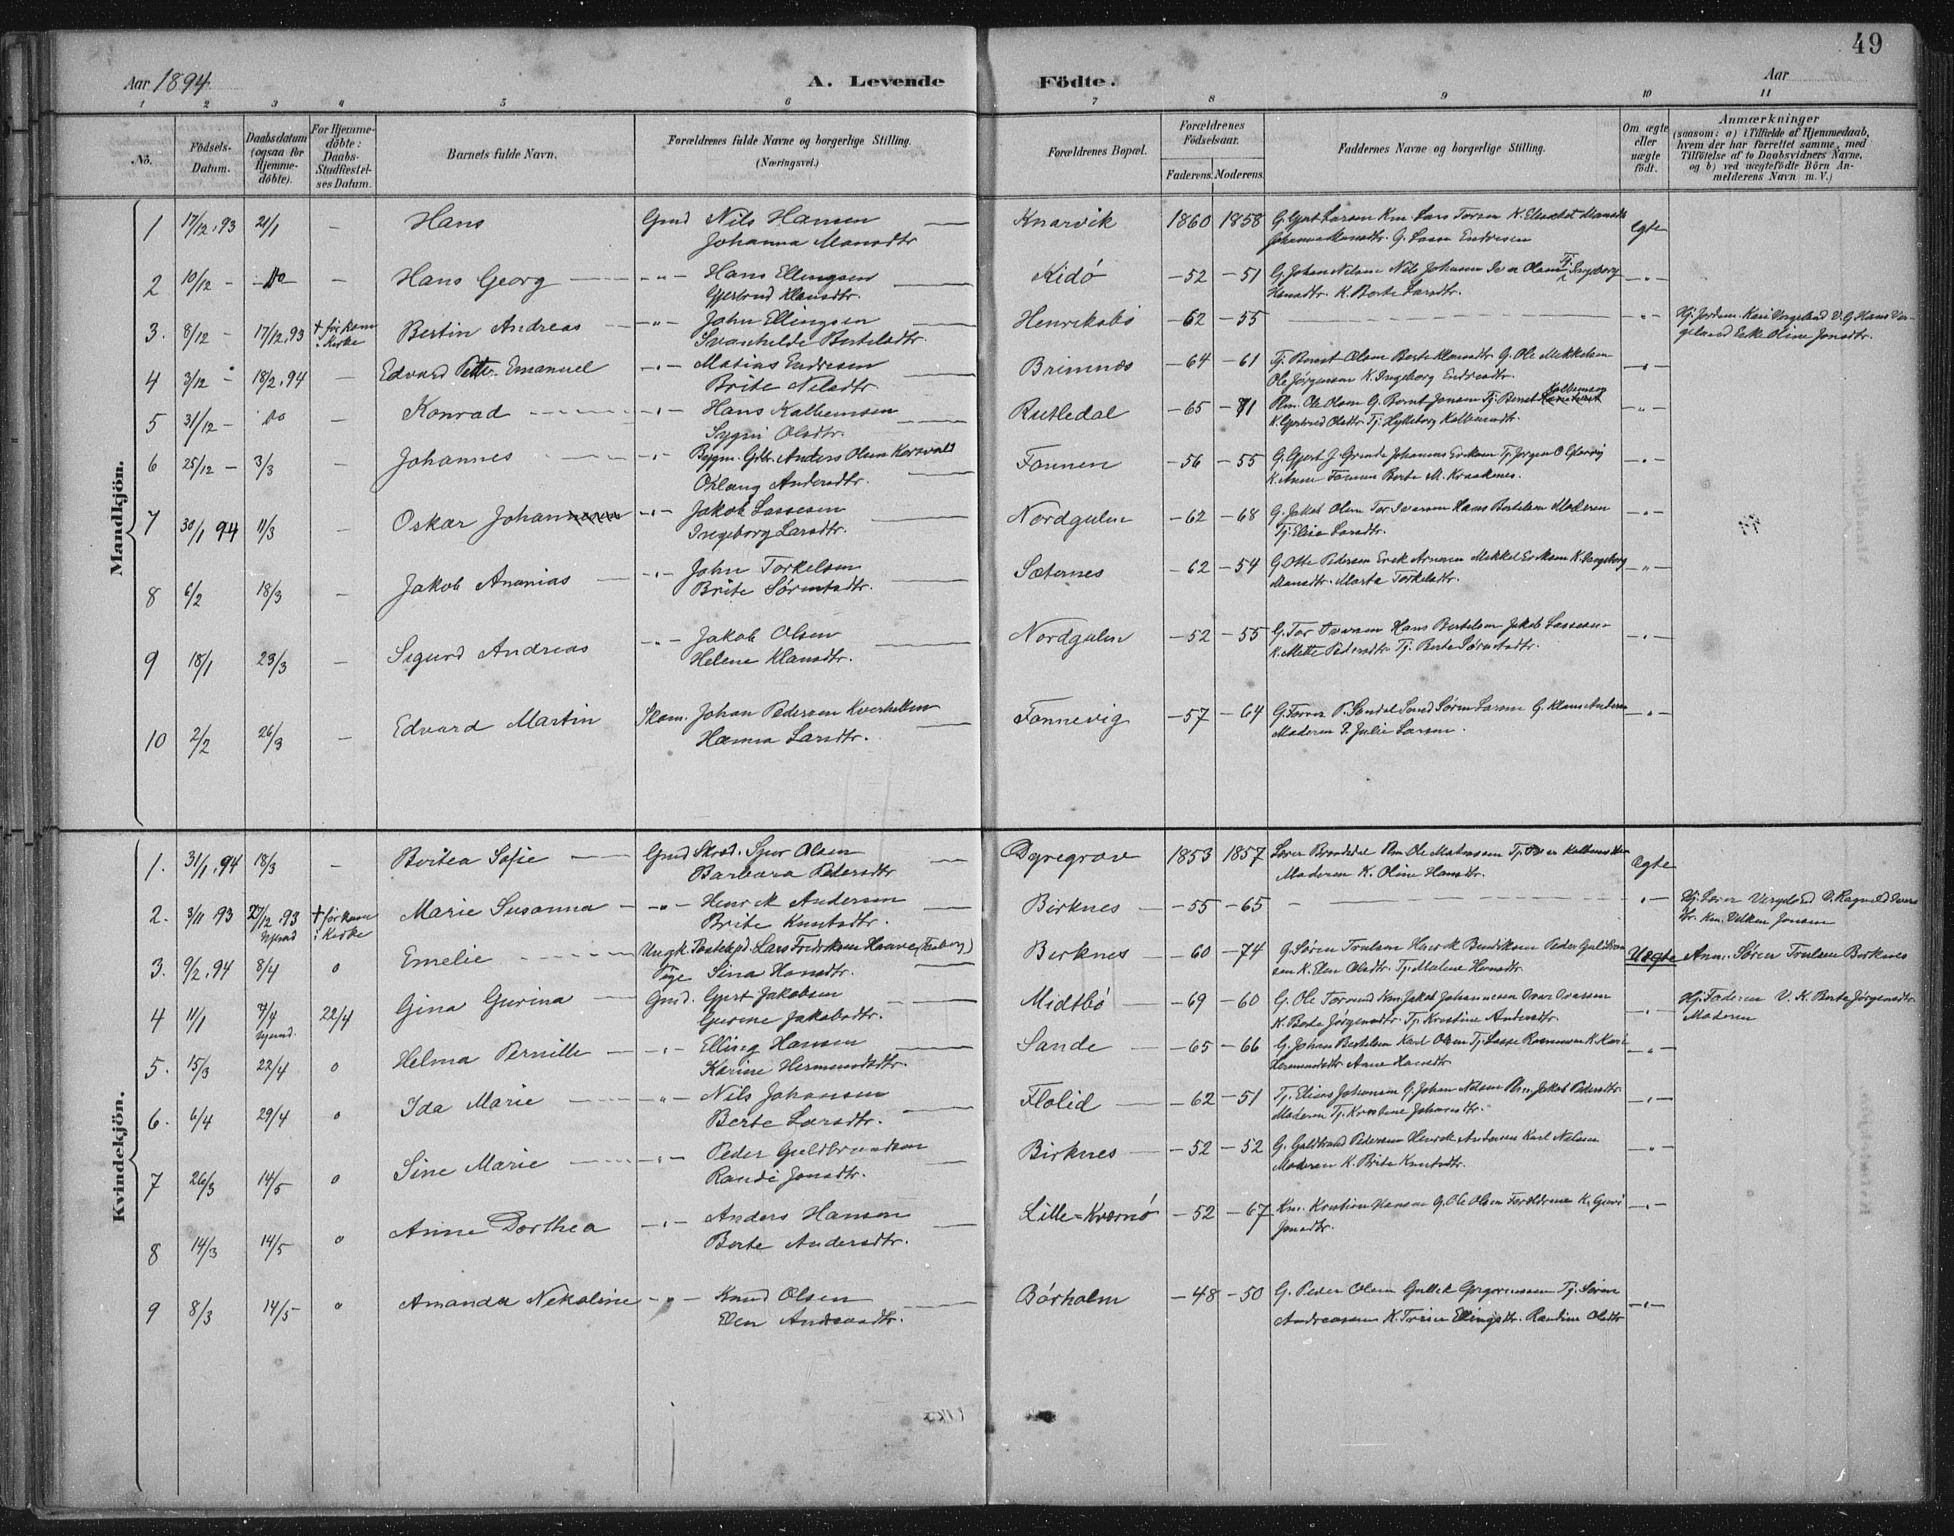 49
Aar 1894. A. Levende Födte. Aar
1 2 3 4 5 6 7 8 9 10 11
No. Födsels-Datum. Daabsdatum (ogsaa for Hjemme-döbte). For Hjemme-döbte: Daabs-Stadfæstel-ses Datum. Barnets fulde Navn. Forældrenes fulde Navne og borgerlige Stilling. (Næringsvei.) Forældrenes Bopæl. Forældrenes Födselsaar. Faderens. Moderens. Faddernes Navne og borgerlige Stilling. Om ægte eller uægte födt. Anmærkninger (saasom: a) i Tilfælde af Hjemmedaab, hvem der har forrettet samme, med Tilföielse af to Daabsvidners Navne, og b) ved uægtefödte Börn An-melderens Navn m. V.)
Mandkjön.
1 17/12.93 21/1 – Hans Gmd Nils Hansen Knarvik 1860 1858 G. Gjert Larsen Km. Lars Torsen K. Elisabet Mansdtr
Johanna Mansdtr G. Lasse Endresen Egte
2 10/12 – Do – Hans Georg –"– Hans Ellingsen Kidø –52 –51 G. Johan Nilsen Nils Johansen Iver Olsen Tj. Ingeborg
Gjertrud Klausdtr. Hansdtr. K. Berte Larsdtr. –"–
3. 8/12 – 17/12.93 + før kom i Kirke Bertin Andreas –"– John Ellingsen Henriksbø –62 –55 –"– Hj. Jordem. Kari Vergeland V. G. Hans Ver-
Svanhilde Bertelsdtr. geland Enke Oline Jonsdtr.
4 3/12 – 18/2.94 – Edvard Petter Emanuel –"– Matias Endresen Brimnes –64 –61 Tj. Bernt Olsen Berte Klausdtr G. Ole Mikkelsen
Brite Nilsdtr Ole Jörgensen K. Ingeborg Endresdtr. –"–
5 31/12 – Do – Konrad –"– Hans Kolbensen Rutledal –65 –71 Pm. Ole Olsen G. Bernt Jonsen Tj. Bernt Kolbensen
Sygni Olsdtr. K. Gjertrud Olsdtr Tj. Hylleborg Kolbensdtr –"–
6 25/12 – 3/3 – Johannes Bygm. Gbr. Anders Olsen Fonnen –56 –55 G. Gjert J. Grinde Johannes Eriksen Tj. Jörgen O.
Anderdtr. K. Anne Fonnen Berte M. Kraakenes. –"–
7 30/1 94 11/3 – Oskar Johan –"– Jakob Lassesen Nordgulen –62 –68 G. Jakob Olsen Tor Iversen Hans Bertelsen Moderen
Ingeborg Larsdtr. Tj. Elisa Larsdtr. –"–
8 6/2 18/3 – Jakob Ananias –"– John Torkelsen Sæternes –62 –54 G. Otte Pedersen Erik Arnesen Mikkel Eriksen K. Ingeborg
Brite Sörensdtr. Mansdtr. Marta Torkelsdtr. –"–
9 18/1 23/3 – Sigurd Andreas –"– Jakob Olsen Nordgulen –52 –55 G. Tor Iversen Hans Bertelsen Jakob Lassesen
Helene Klausdtr. K. Mette Pedersdtr Tj. Berte Sörensdtr. –"–
10 2/2 26/3 – Edvard Martin Skom. Johan Pedersen Kverhellen Fonnevig –57 –64 G. Torres P. Sandal Sören Larsen G. Klaus Andersen
Hanna Larsdtr. Moderen P. Julie Larsen. –"–
Kvindekjön.
1. 31/1.94 18/3 – Britea Sofie Gmd Skræd. Sjur Olsen Dyregrov 1853 1857 Lærer Brandedal Pm Ole Matiassen Tj. Iver Kolbensen
Barbara Pedersdtr Moderen K. Oline Hansdtr. Egte
2. 3/11 93 27/12.93 + før kom i Kirke Marie Susanna –"– Henrik Andersen Birknes –55 –65 – –"– Hj. Lærer
Brite Knutsdtr. Km. Jonsen
3. 9/2.94 8/4 o Emelie Ungk. Lars Fredriksen Birknes –60 –74 G. Sören Trulsen Henrik Bendiksen Peder Guldbrand-
Pige Sina Hansdtr. sen K. Elen Olsdtr. Tj. Malene Hansdtr. Uægte Anm. Sören Trulsen Birknes
4 11/1 7/4 22/4 Gina Gurina Gmd. Gjert Jakobsen Midtbö –69 –60 G. Ole Km. Jakob Johannesen Ivar Ivarsen Hj. Faderen V. K. Berte Jörgensdtr.
Gurine Jakobsdtr. K. Berte Jörgensdtr. Tj. Kristine Andersdtr. –"– Moderen
5. 15/3 22/4 o Helma Pernille –"– Elling Hansen Sande –65 –66 G. Johan Bertelsen Karl Olsen Tj. Lasse Rasmussen K. Kari
Karine Hermundsdtr. Hermundsdtr Anne Hansdtr. –"–
6. 6/4 29/4 o Ida Marie –"– Nils Johansen Flolid –62 –51 Tj. Elias Johansen G. Johan Nilsen Pm. Jakob Pedersdtr
Berte Larsdtr. Moderen Tj. Kristine Johansdtr. –"–
7 26/3 14/5 o Sine Marie –"– Peder Guldbrandsen Birknes –52 –52 G. Guldbrand Pedersen Henrik Andersen Karl Nilsen
Randi Jonsdtr. Moderen K. Brite Knutsdtr. –"–
8 14/3 14/5 o Anne Dorthea –"– Anders Hansen Lille-Kværnø –52 –67 Km. Kristian Hansen G. Ole Olsen Forældrene K. Guri
Berte Andersdtr. Jonsdtr. –"–
9 8/3 14/5 o Amanda Nekoline –"– Knud Olsen Børholm –48 –50 G. Peder Olsen Gullek Gregoriussen Tj. Sören
Elen Andreasdtr. Andreassen K. Trine Ellingsdtr. Randine Olsdtr –"–